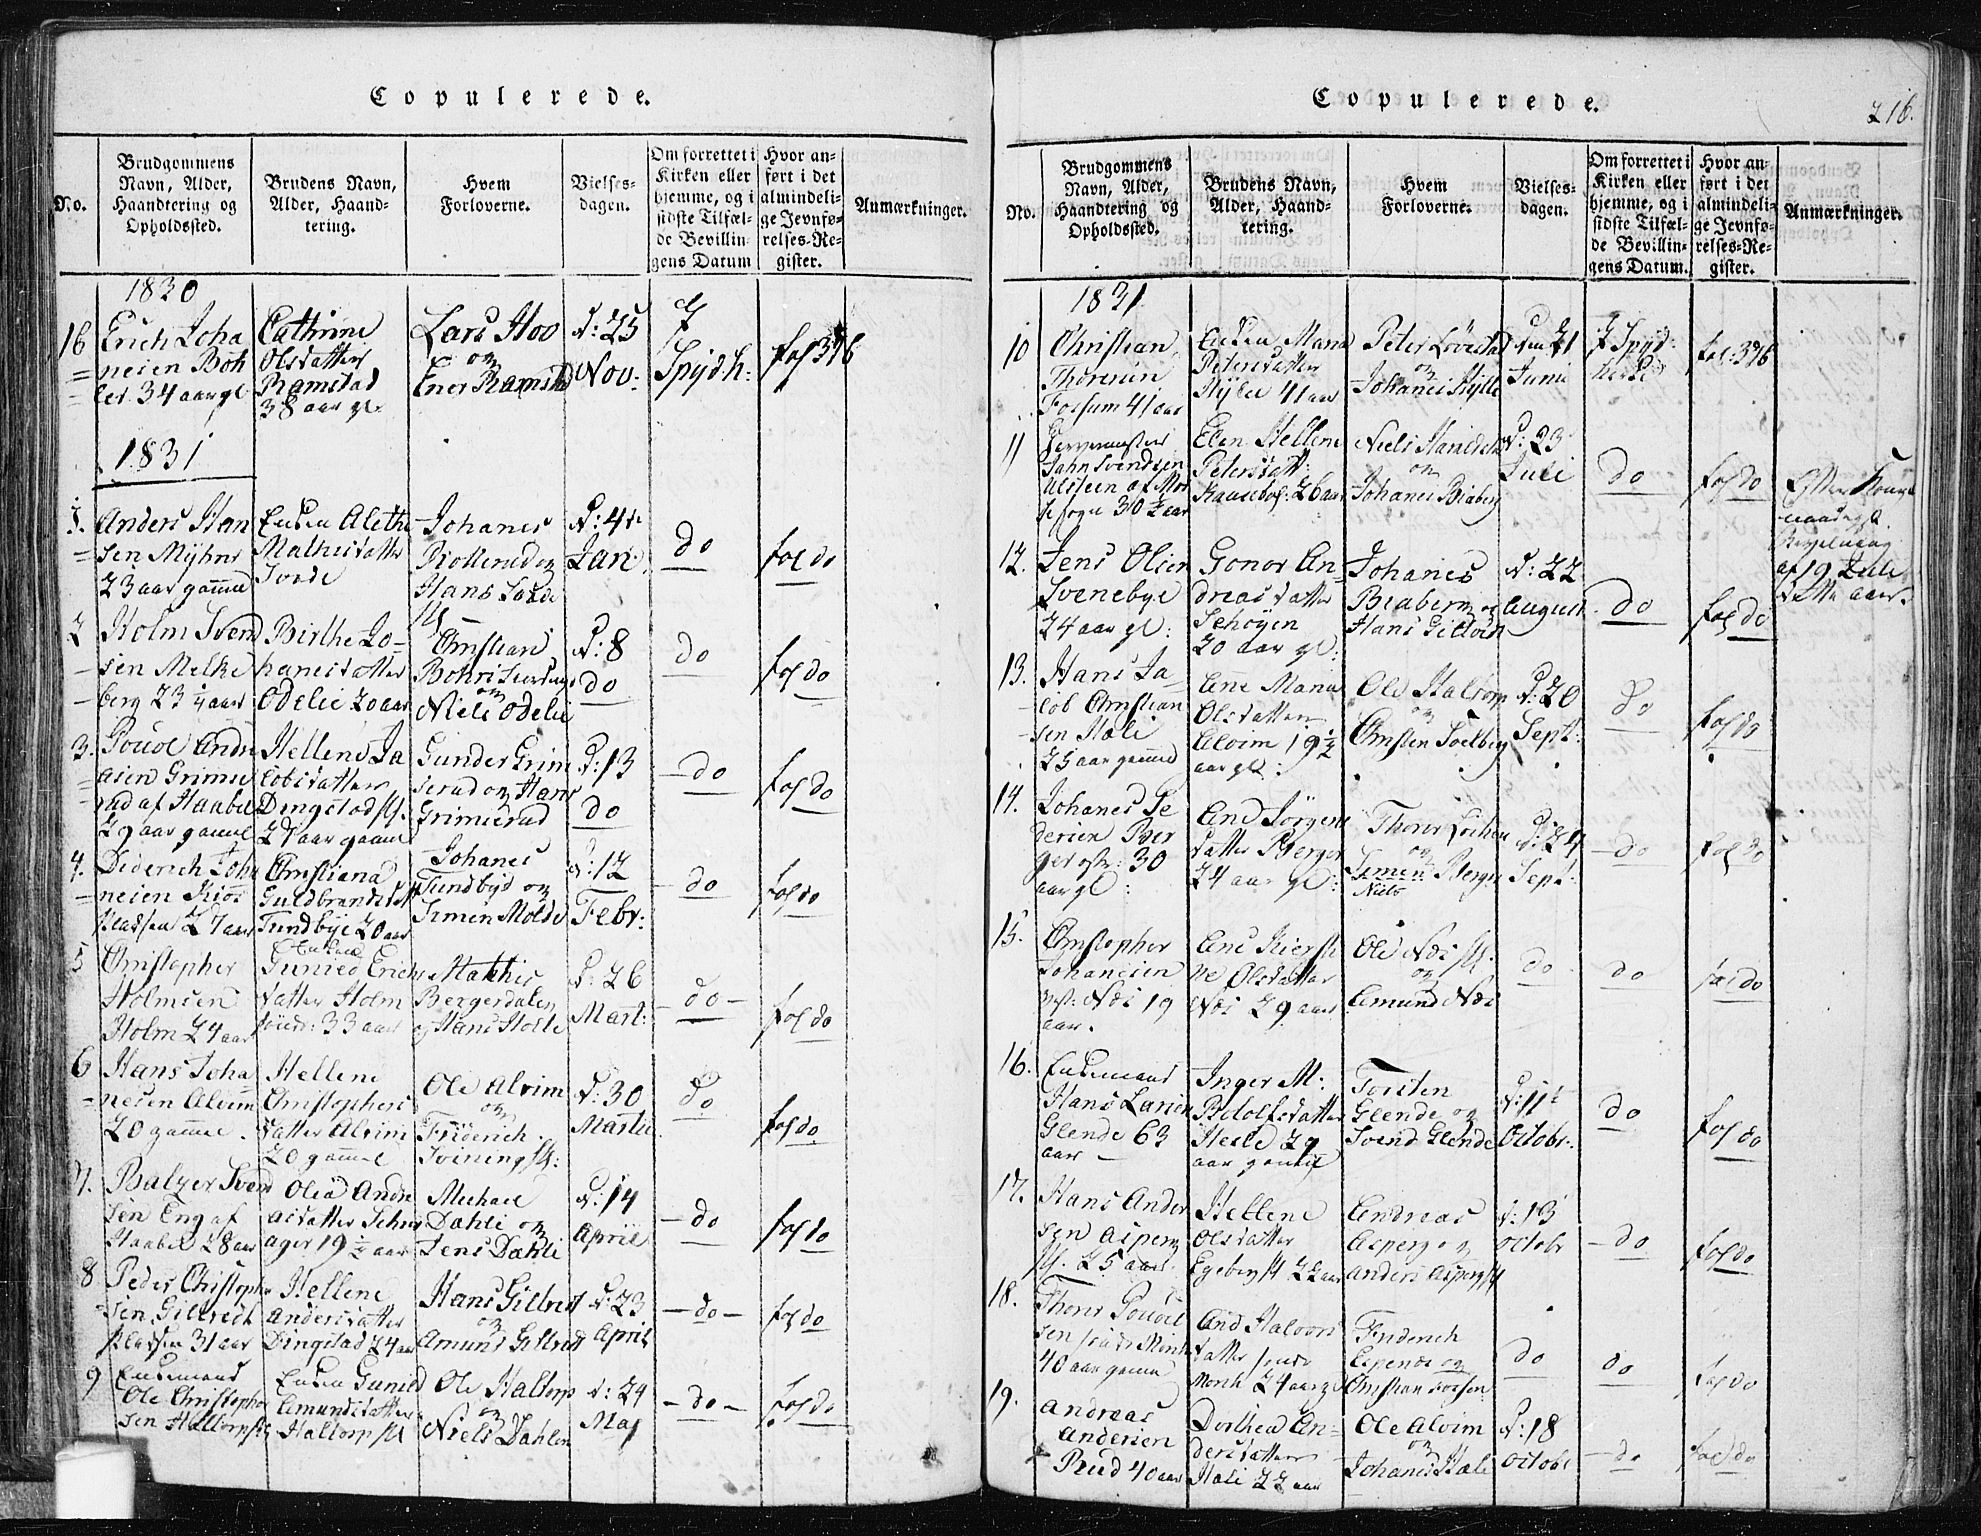 Copulerede.
No.
Brudgommens
Navn, Alder,
Haandtering og
Opholdssted.
Brudens Navn,
Alder, Haand-
tering.
Hvem
Forloverne.
Vielses-
dagen.
Om forrettet i
Kirken eller
hjemme, og i
sidste Tilfæl-
de Bevillin-
gens Datum
Hvor an-
ført i det
almindeli-
ge Jevnfø-
relses-Re-
gister.
Anmærkninger.
1830
16
Erich Joha
nesen Böh
ler. 34 aar gl
Cathrine
Olsdatter
Ramstad
38 aar gl.
Lars Hoo
og
Ener Ramstad
d: 25
Nov:
Spydb:
fol 376
1831
Anders Han
sen Myhre
23 aar gamel
Enken Alethe
Mathisdatter
Johanes
Hans
d: 4de
Jan.
do
fol do
2
Holm Svend
sen Melke
berg 23 1/2 aar
Birthe Jo-
hanesdatter
Odelie 20 aar
Christian
og
Niels Odelie
d: 8
do
do
fol do
3.
Povel Andre
asen Grimse
rud af Haabøl
29 aar gamel
Hellene Ja
cobsdatter
Dingstad
aar gamel
Gunder Grim
serud og Hans
Grimserud
d: 13
do
do
fol do
4.
Diderich Joha
nesen
Pladsen 27 aar
Christiana
Guldbrandsd
Tundbye 20 aar
Johanes
Tundbye og
Simen Molde
d: 12
Febr:
do
fol do
5
Christopher
Holmsen
Holm 24 aar
Enken
Gunild Erichs
datter Holm
33 aar
Mathis
Bergerdalen
og Hans
d: 26
Mart:
do
fol do
6
Hans Joha
nesen Alvim
20 gamel.
Hellene
Christophers
datter Alvim
20 gamel
Ole Alvim
og
Friderich
d: 30
Martii
do
fol do
7.
Balzer Svend
sen Eng af
Haabøl 28 aar
Olea Andre
asdatter
ager 19 1/2 aar
Michael
Dahle og
Jens Dahle
d: 14
April
do
fol do
8
Peder Christopher
sen Gillvedt
Pladsen 31 aar
Hellene
Andersdatter
Dingstad 24 aar
Hans Gillvedt
og
Amund Gillvedt
d: 23
April
do
fol do
9
Enkemand
Ole Christopher
sen Haltorp
Enken Gunild
Amundsdatter
Haltorp
Ole Haltorp
og
Niels Dahlen
d: 24
Maj
do
fol do
Copulerede.
216.
No.
Brudgommens
Navn, Alder,
Haandtering og
Opholdssted.
Brudens Navn,
Alder, Haand-
tering.
Hvem
Forloverne.
Vielses-
dagen.
Om forrettet i
Kirken eller
hjemme, og i
sidste Tilfæl-
de Bevillin-
gens Datum.
Hvor an-
ført i det
almindeli-
ge Jevnfø-
relses-Re-
gister.
Anmærkninger.
1831.
10
Christian
Thoresen
Fossum 41 aar
Enken Maria
Petersdatter
41 aar
Peter Lövestad
og
Johanes
den 21
Junii
Spyd:
fol: 376
11
John Svendsen
Ulsteen af Mos
se sogn 30 1/2 aar
Elen Hellene
Petersdatt:
26 aar
Niels Hanssen
og
Johanes Braberg
d: 23
Juli
do
fol do
Efter Konge
Bevilning
af 19 Julii
dette aar.
12.
Jens Olsen
Svenebye
24 aar gl:
Gonor An-
dreasdatter
Schøyen
20 aar gl:
Johanes
Braberg og
Hans
d: 22
August
do
fol do
13.
Hans Ja-
cob Christian
sen Hali
25 aar gamel
Ane Maria
Olsdatter
Alvim 19 1/2
aar gl:
Ole Haltorp
og
Christen Soelberg
d: 20
Sept:
do
fol do
14.
Johanes Pe
dersen Ber
ger 30
aar gl:
Ane Jørgens
datter Berger
24 aar gl:
Thorer
og
Simen Berger
Niels
d: 24
Sept:
do
fol do
15.
Christopher
Johansen
Næs 19
aar.
Ane Kiersti
ne Olsdatter
Næs 29 aar
Ole Næs
og
Amund Næs
do
do
fol do
16.
Enkemand
Hans Larsen
Glende 63
aar
Inger M:
Rolofsdatter
29
aar gamel
Torsten
Glende og
Svend Glende
d: 11te
Octobr.
do
fol do
17.
Hans Ander
sen Asperg
25 aar
Hellene
Olsdatter
Egeberg 22 aar
Andreas
Asperg og
Anders Asperg
d: 13
Octobr
do
fol do
18.
Thorer Povel
sen
40 aar gamel
Ane Halvors
datter
24 aar gl
Friderich
Espenæs og
Christian
do
do
fol do
19.
Andreas
Andersen
Rud 40 aar
Dorthea An-
dersdatter
Hali 22 aar
Ole Alvim
og
Johanes Hali
d: 18
Octobr
do
fol do